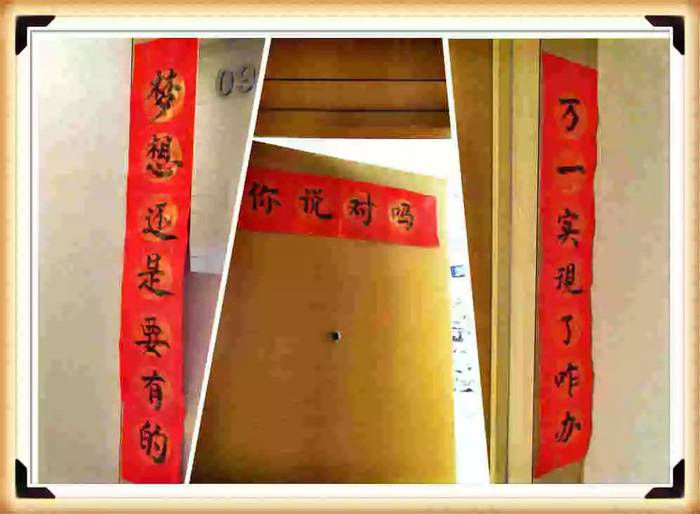 梦想还是要有的
09
你说对吗
万一实现了咋办